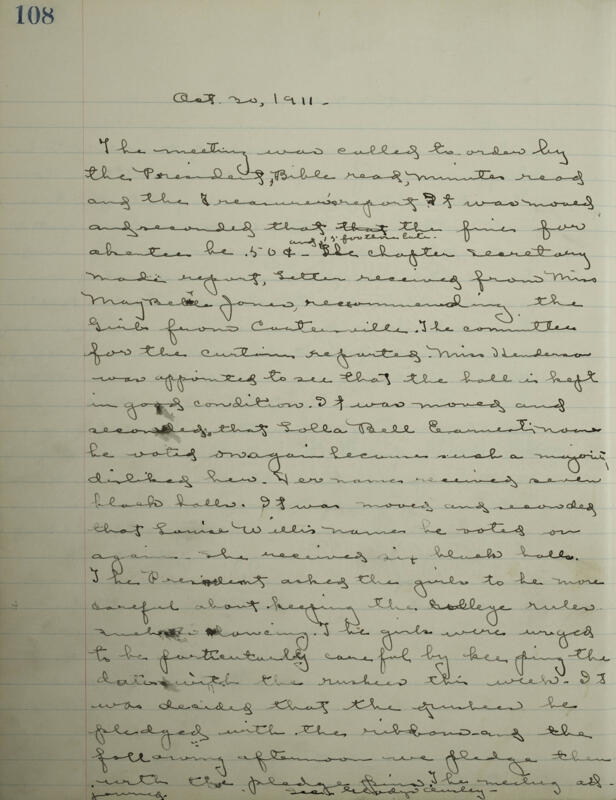 108
Oct. 20, 1911-
The meeting was called to order by
the President, Bible read, minutes read
and the Treasurer's report. It was moved
and seconded that that the fines for
and for them late.
absentees be .50¢- The chapter secretary
made report, Letter received from Miss
MayBelle Jones, recommending the
Girls from Cartersville. The committee
for the curtains reported. Miss Henderson
was appointed to see that the hall is kept
in good condition. It was moved and
seconded, that Lolla Bell Earnest's name
be voted on again because such a majority
disliked her. Her name received seven
black balls. It was moved and seconded
that Louise Willis name be voted on
again - she received six black balls.
The President asked the girls to be more
careful about keeping the college rules
such as dancing. The girls were urged
to be particularly careful by keeping the
dates with the rushees this week. It
was decided that the rushees be
pledged with the ribbons and the
following afternoon we pledge them
with the pledge pins. The meeting ad-
journed. Sec. Gladys